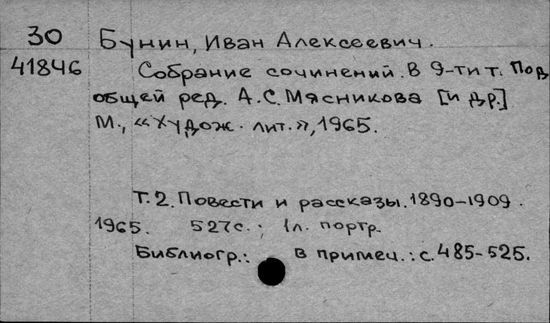 30 Бунин, Иван Алексеевич.
41846 Собрание сочинений. В 9-ти т. Под
общей ред. А.С. Мясникова [и др.]
М., «Худож. лит.», 1965.
Т.2. Повести и рассказы. 1890-1909.
1965. 527с.; 1л. портр.
Библиогр.: в примеч.: с.485-525.